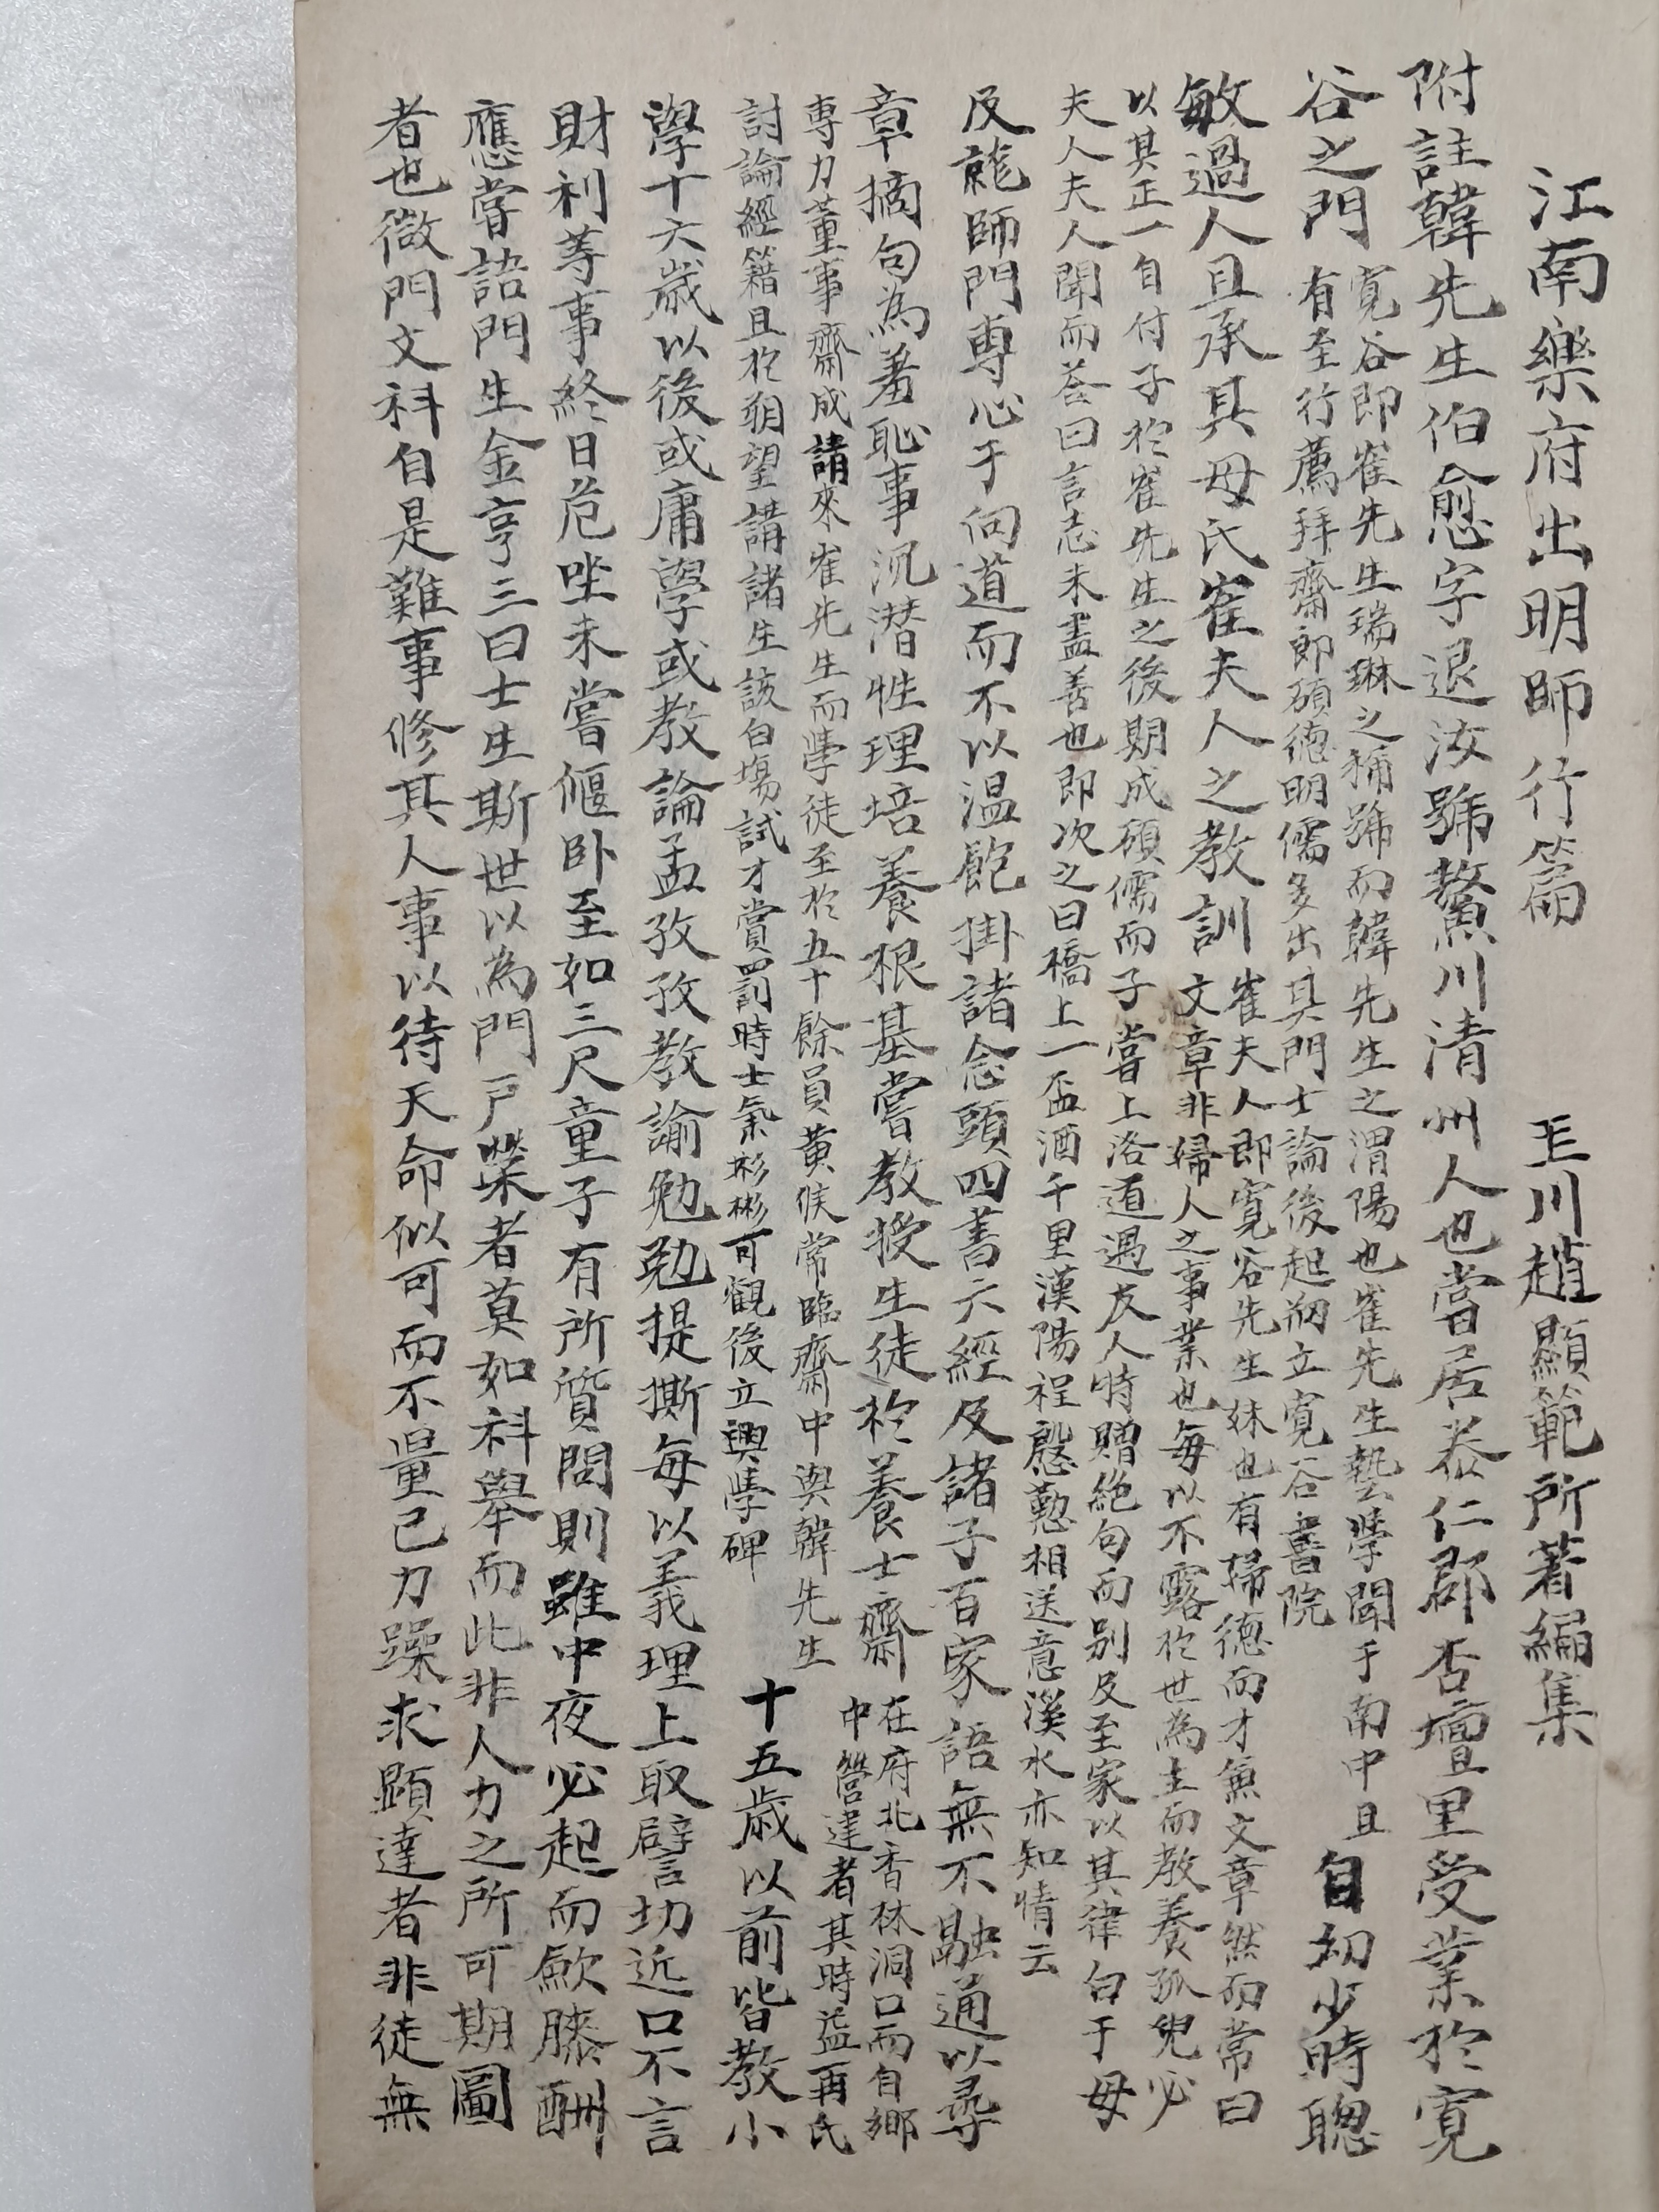 江南樂府出明師行篇　　玉川趙顯範所著編集
附註韓先生伯愈字退汝號鰲川清州人也當居泰仁郡杏壇里受業於寬
谷之門
寬谷即崔先生瑞琳之稱號而韓先生之渭陽也崔先生藝學聞于南中且
有至行薦拜齋郎碩德明儒多出其門士論後起刱立寬谷書院
自幼少時聰
敏過人且承其母氏崔夫人之教訓
崔夫人即寬谷先生妹也有婦德而才兼文章然而常曰
文章非婦人之事業也每以不露於世為主而教養孤兒必
以其正一自付子於崔先生之後期成碩儒而子嘗上洛道遇友人時贈絶句而别及至家以其律白于母
夫人夫人聞而答曰言志未盡善也即次之曰橋上一盃酒千里漢陽程慇懃相送意溪水亦知情云
及龍師門專心于向道而不以温飽掛諸念頭四書六經及諸子百家語無不融通以尋
章摘句為羞恥事沉潜性理培養根基嘗教授生徒於養士齋
在府北香林洞口而自鄉
中營建者其時益再氏
専力董事齋成請來崔先生而學徒至於五十餘員黄候常臨齋中與韓先生
討論經籍且於朔望講諸生設白塲試才賞罰時士氣彬彬可觀後立興學碑
十五歲以前皆教小
學十六歲以後或庸學或教論孟孜孜教諭勉勉提撕每以義理上取譬切近口不言
財利等事終日危坐未嘗偃卧至如三尺童子有所質問則雖中夜必起而歛膝酬
應嘗語門生金亨三曰士生斯世以為門戸榮者莫如科舉而此非人力之所可期圖
者也微門文科自是難事修其人事以待天命似可而不量己力躁求顕達者非徒無